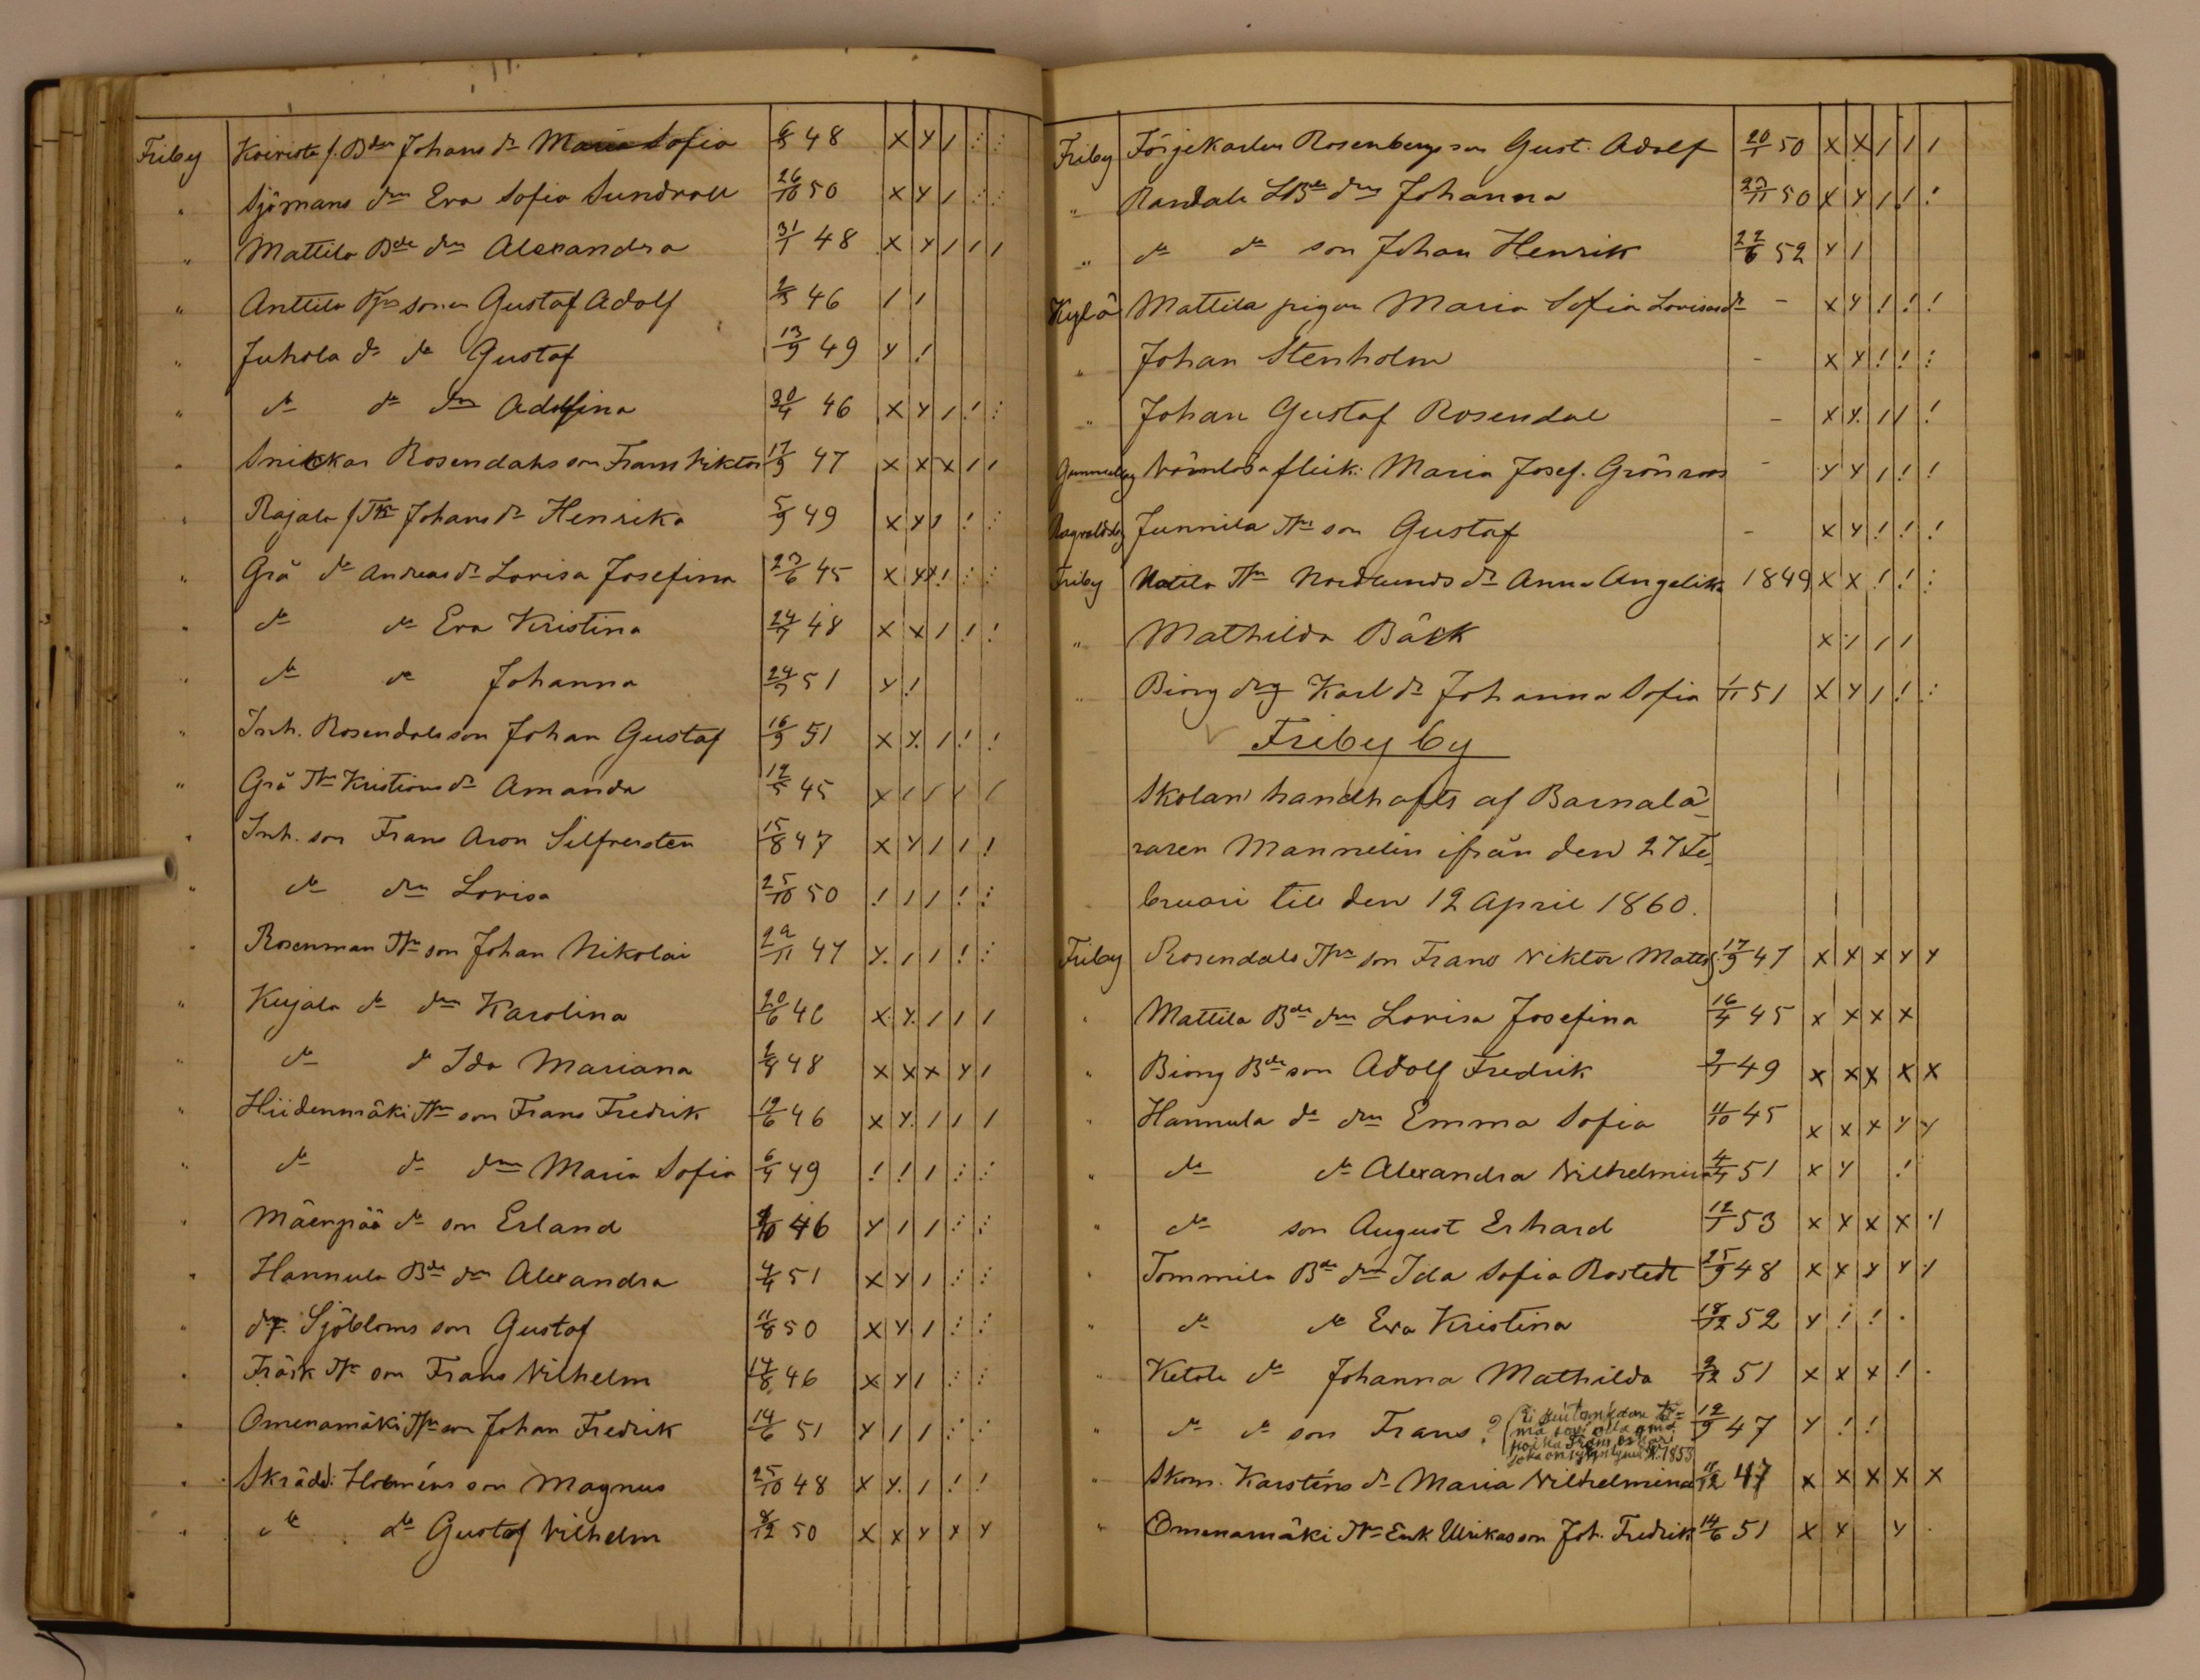 Friby Koivista f. Bdes Johans dr Maria Sofia 6/8 48 x y / ⁝ ⁝
" Sjömans drn Eva Sofia Sundvall 26/10 50 x y / ⁝ ⁝
" Mattila Bde drn Alexandra 31/1 48 x y / / /
" Anttila Tprs sonen Gustaf Adolf 46 / /
" Juhola do do Gustaf 13/9 49 y !
" do do drn Adolfina 30/4 46 x y / ! ⁝
" Snickar Rosendahs son Frans Viktor 17/9 47 x x x / /
" Rajala f Tpr Johans dr Henrika 5/9 49 x y / ! ⁝
" Grå do Andreas dr Lovisa Josefina 23/6 45 x y x ! ⁝ ⁝
" do do Eva Kristina 24/7 48 x x / ! !
" do do Johanna 24/9 51 y !
" Inh. Rosendals son Johan Gustaf 16/9 51 x y. / ! !
" Grå Tpr Kristians dr Amanda 12/5 45 x / / / /
" Inh. son Frans Aron Silfversten 15/8 47 x y / / !
" do drn Lovisa 25/10 50 ! / / ! ⁝
" Rosenman Tpr son Johan Nikolai 29/11 47 y. / / ! ⁝
" Kujala do drn Karolina 20/6 46 x. y. / / /
" do do Ida Mariana 48 x x x y /
" Hiidenmäki Tpr son Frans Fredrik 12/6 46 x y. / / /
" do do drn Maria Sofia 6/4 49 ! ! / ⁝ ⁝
" Mäenpää do son Erland 46 y / / ⁝ ⁝
" Hannula Bde drn Alexandra 4/4 51 x y / ⁝ ⁝
" drg. Sjöbloms son Gustaf 11/8 50 x y / ⁝ ⁝
" Fräsk Tpr son Frans Vilhelm 14/8 46 x y / ⁝ ⁝
" Omenamäki Tpr son Johan Fredrik 14/6 51 y / / ⁝ ⁝
" Skrädd: Holméns son Magnus 25/10 48 x y. / ! !
" do do Gustaf Vilhelm 8/12 50 x x y x y
Friby Färjekarlen Rosenbergs son Gust. Adolf 20/1 50 x x / / /
" Randala LBde drn Johanna 23/11 50 x y / ! !
" do do son Johan Henrik 22/6 52 y /
Kylä Mattila pigan Maria Sofia Lovisas dr - x y ! ! !
" Johan Stenholm - x y ! ! ⁝
" Johan Gustaf Rosendal - x y. / / !
Gammelby Värnlösa flick: Maria Josef. Grönroos - y y / ! !
Ragvaldsby Junnila Tprs son Gustaf - x y ! ! !
Friby Mattila Tpr Nordlunds dr Anna Angelika 1849 x x ! ! ⁝
" Mathilda Bäck x / / /
" Biong drg Karls dr Johanna Sofia 1/11 51 x y / ! ⁝
Friby by
Skolan handhafts af Barnalä-
raren Mannelin ifrån den 27 Fe-
bruari till den 12 April 1860.
Friby Rosendals Tprs son Frans Viktor Matts 17/9 47 x x x y y
" Mattila Bde drn Lovisa Josefina 16/4 45 x x x x
" Biong Bde son Adolf Fredrik 2/1 49 x x x x x
" Hannula do drn Emma Sofia 11/10 45 x x x y y
" do do Alexandra Vilhelmina 4/4 51 x y !
" do son August Erhard 12/1 53 x x x x /
" Tommila Bde drn Ida Sofia Rostedt 25/9 48 x x y y /
" do do Eva Kristina 18/12 52 y ! ! .
" Ketola do Johanna Mathilda 9/12 51 x x x ! .
" do do son Frans ? 12/9 47 y ! !
(Ei
mä
poika Frans Oskar
joka on syntynyt 1853
" Skom. Karsténs dr Maria Vilhelmina 11/12 47 x x x x x
" Omenamäki Tpr Enk Ulrikas son Joh. Fredrik 14/6 51 x x y .